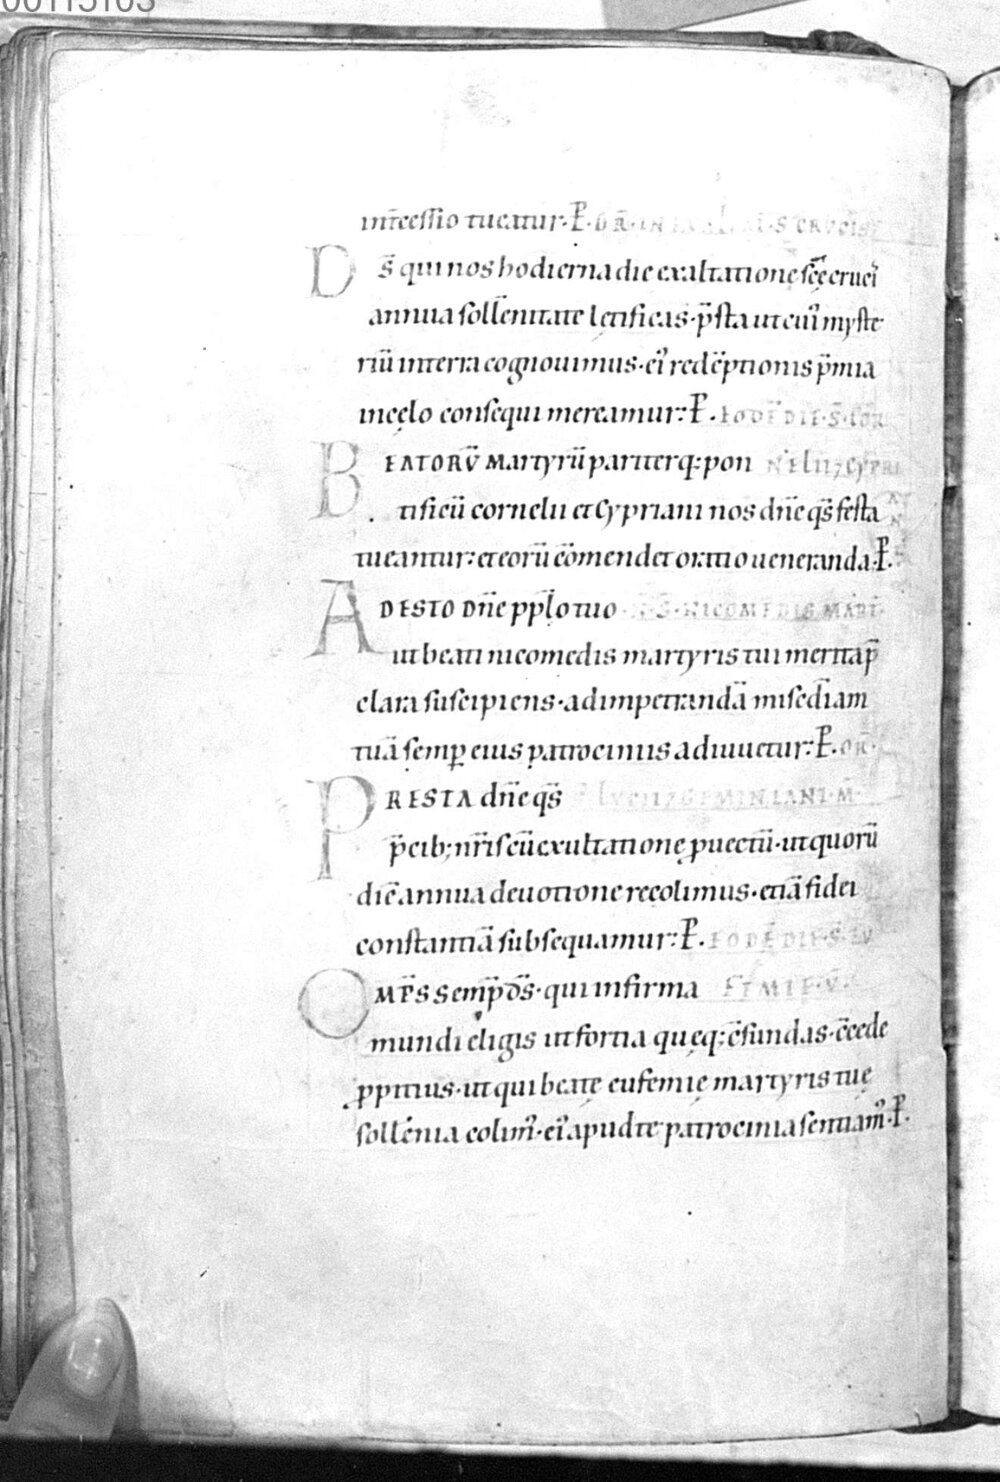 00115103
int̄cessio tueatur· P̄· OR̄· IN EXALTAT̄· S̄ CRUCIS
Ds̄ qui nos hodierna die exaltatione scę̄ cruci᾽
annua soll̄enitate lętificas· p̄sta ut cui᾽ myste
riū in terra cognouimus· ei᾽ redēptionis p̄mia
in cęlo consequi mereamur: P̄· EODĒ DIE· S̄· COR
BEATORŪ Martyrū pariterq; pon NELII ⁊ CYPRI
tificū cornelii et Cypriani nos dn̄e qs̄ festa AN
tueantur: et eorū cōmendet oratio ueneranda· P̄·
ADESTO Dn̄e ppl̄o tuo S̄· NICOMEDIS MART̄
ut beati nicomedis martyris tui merita p̄
clara suscipiens· ad impetrandā mis̄cdiam
tuā semp̱ eius patrociniis adiuuetur: P̄· OR̄·
PRESTA dn̄e qs̄ LUCII ⁊ GEMINIANI· M̄·
p̄cib; nr̄is cū exultatione ꝓuectū· ut quorū
diē annua deuotione recolimus· etiā fidei
constantiā subsequamur: P̄· EODĒ DIE· S̄· EU
OMPS̄ Semp̄ ds̄· qui infirma FEMIE· V̄·
mundi eligis ut fortia quęq; c̄fundas· c̄cede
ꝓpitius· ut qui beatę eufemię martyris tuę
soll̄enia colim᾽· ei᾽ apud te patrocinia sentiam᾽· P̄·